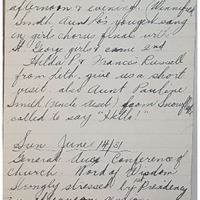 afternoon & evening. (Winnifred
Smith, Aunt P's youngest sang
in girl chorus final with
St Georg girls & came
Hilda P & Francis Russell
from Leth. give us a short
visit. also Aunt Pauline
Smith (Uncle
called to say "Hello!"
Sun June 14/31
General Aux Conference of
church. Word of Wisdom
strongly stressed by Presidency